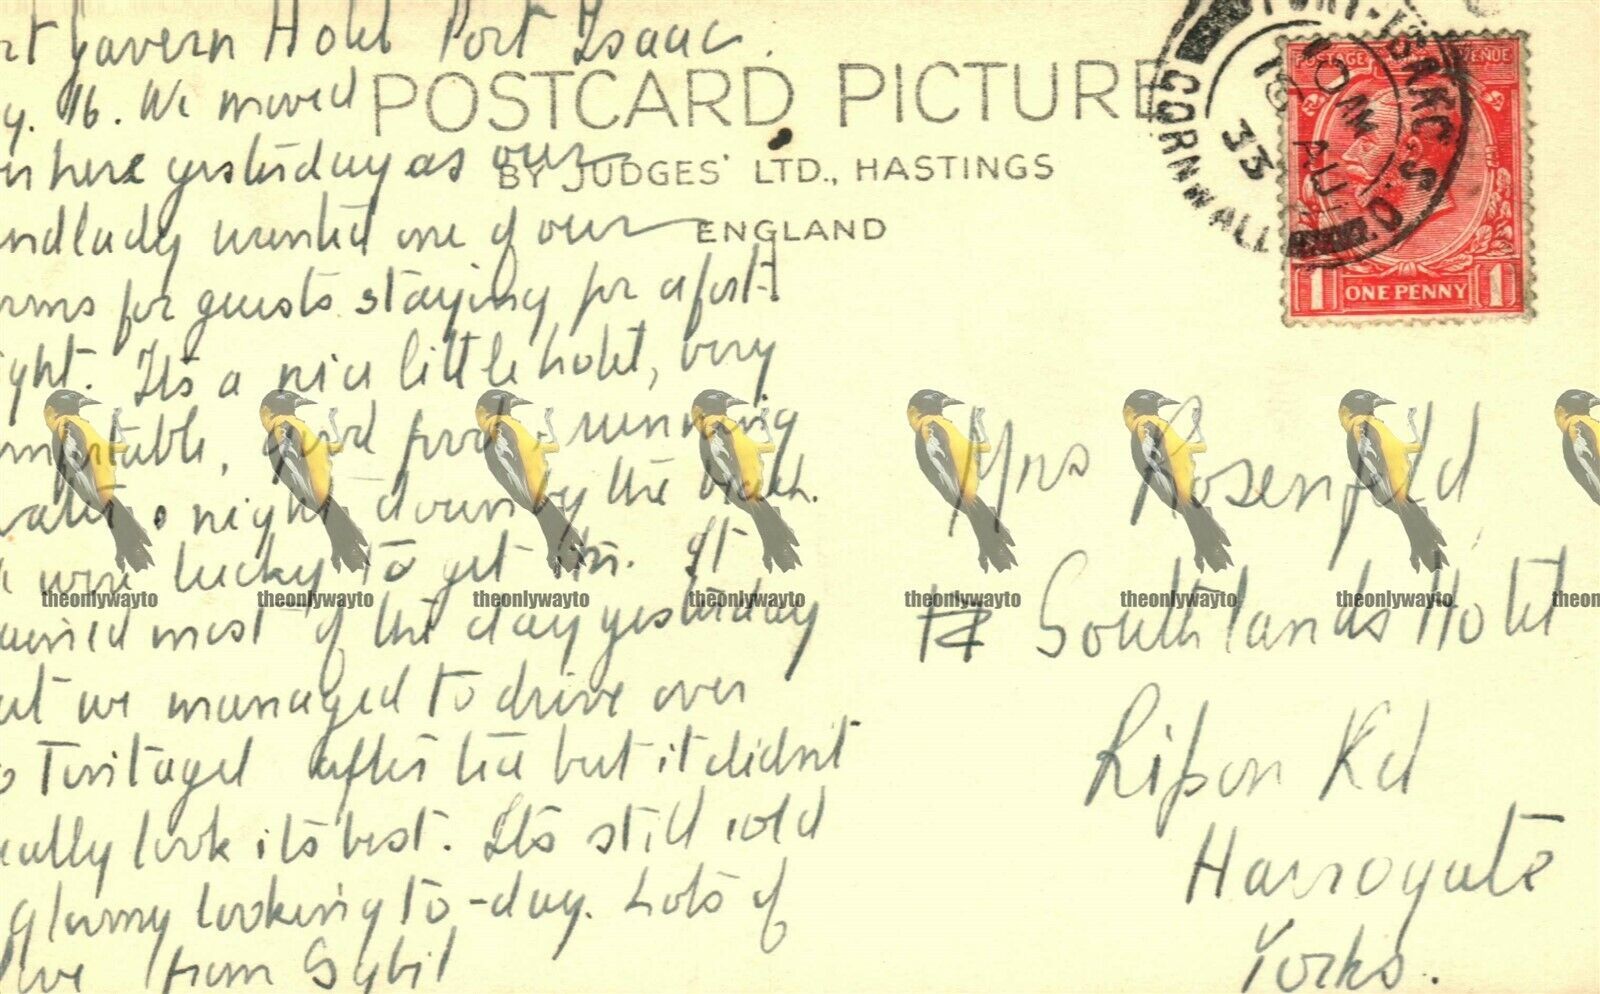 rt Gavern Hotel Port Isaac.
g. 16. We moved
er here yesterday as our
ndlady wanted one of our
oms for guests staying for a fort-
ight. It's a nice little hotel, very
omfortable, good food, running
water & right down by the beach.
e were lucky to get in. It
ained most of the day yesterday
ut we managed to drive over
o Tintagel after tea but it didn't
eally look its best. It's still cold
& gloomy looking to-day. Lots of
love from Sybil
POSTCARD PICTURE
BY JUDGES' LTD., HASTINGS
ENGLAND
PORT-ISAAC S.O.
10 AM
16 AU
33
CORNWALL
POSTAGE REVENUE
1 ONE PENNY 1
Mrs Rosenfeld
Southlands Hotel
Ripon Rd
Harrogate
Yorks.
theonlywayto theonlywayto theonlywayto theonlywayto theonlywayto theonlywayto theonlywayto theon